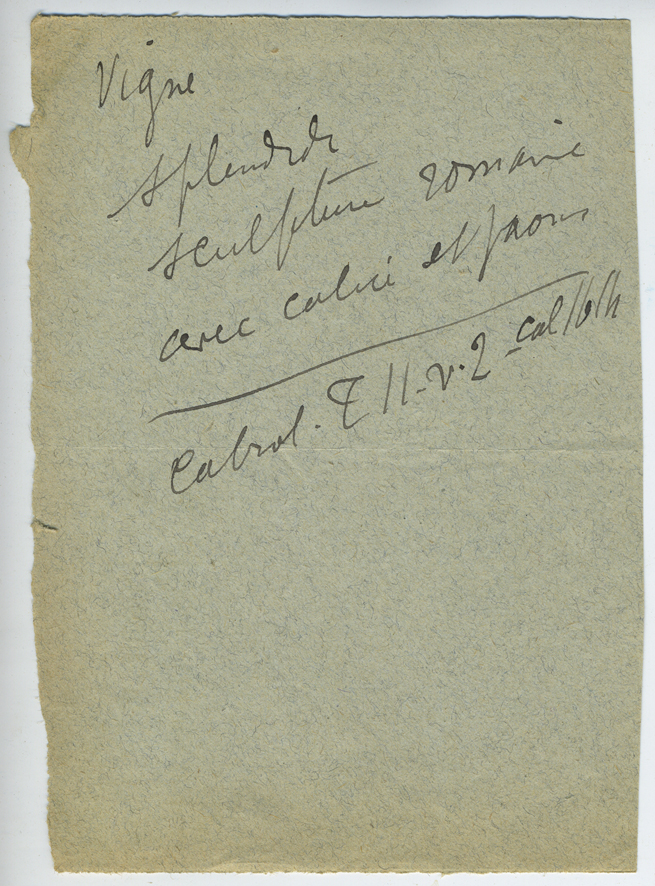 Vigne
splendide
sculpture romaine
avec calice et paons
Cabrol. T II - v. 2 col 1614